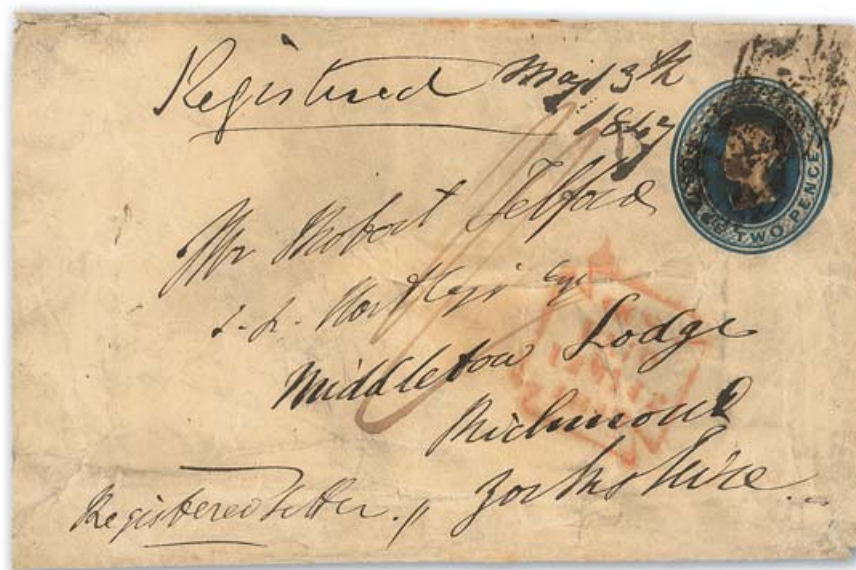 Registered May 13th
1847
POSTAGE TWO PENCE
Mr Robert Telford
Esqr
Middleton Lodge
Richmond
Yorkshire
Registered Letter